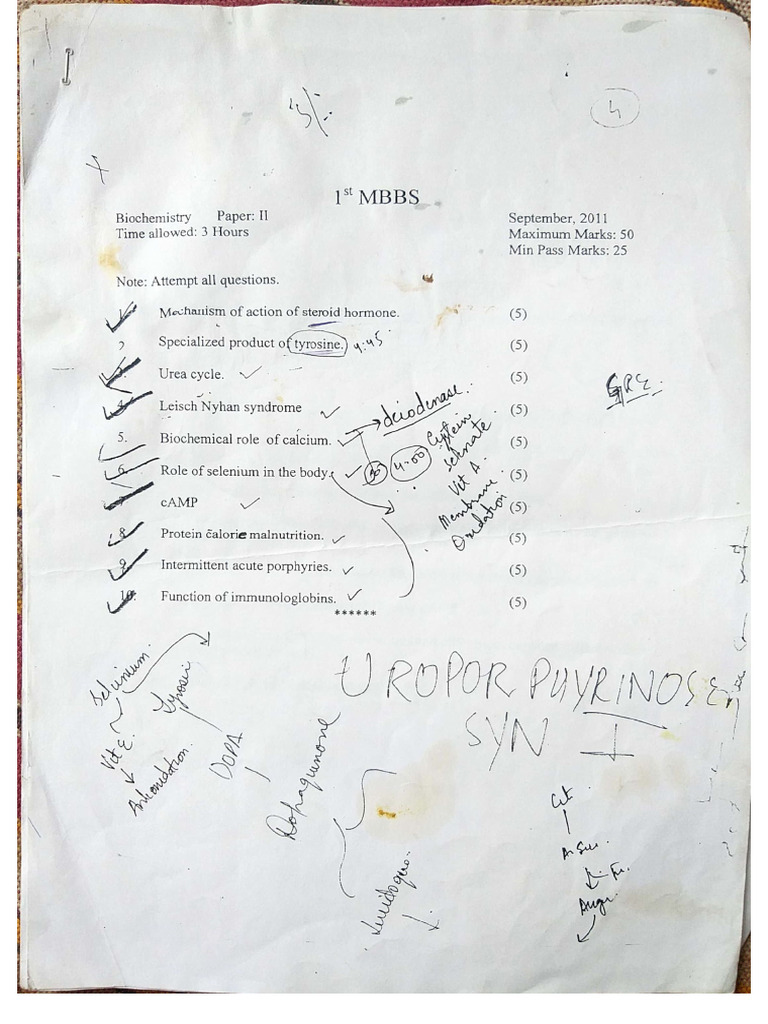 5/-
4
1st MBBS
Biochemistry Paper: II September, 2011
Time allowed: 3 Hours Maximum Marks: 50
Min Pass Marks: 25
Note: Attempt all questions.
1. Mechanism of action of steroid hormone. (5)
Specialized product of tyrosine. 4:45 (5)
Urea cycle. (5)
4. Leisch Nyhan syndrome (5)
5. Biochemical role of calcium. (5)
6. Role of selenium in the body. (5)
7. cAMP (5)
8. Protein calorie malnutrition. (5)
9. Intermittent acute porphyries. (5)
10. Function of immunologlobins. (5)
******
deiodenase
4:00
Vit A.
Membrane
Oxidation
GRE
UROPORPHYRINOSE
SYN I
Selenium.
Vit E.
Antioxidation.
Tyrosin
DOPA
Dopaquinone
Cit